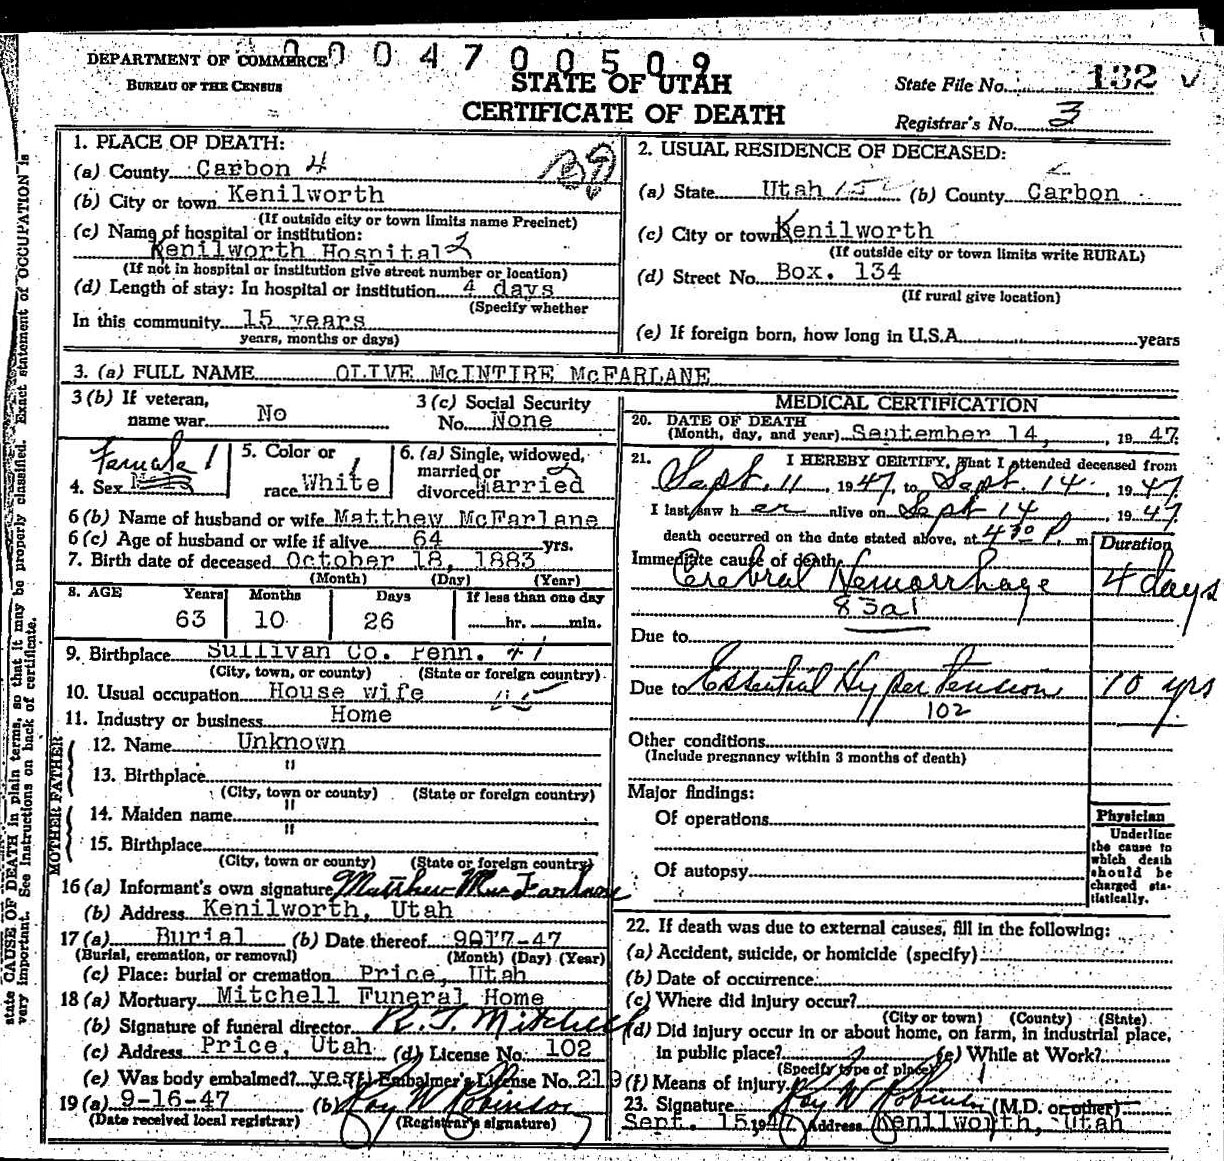 DEPARTMENT OF COMMERCE
0004700509
BUREAU OF THE CENSUS
STATE OF UTAH
CERTIFICATE OF DEATH
State File No. 132
Registrar's No. 3
1. PLACE OF DEATH:
(a) County Carbon 4
(b) City or town Kenilworth
(If outside city or town limits name Precinct)
(c) Name of hospital or institution:
Kenilworth Hospital 2
(If not in hospital or institution give street number or location)
(d) Length of stay: In hospital or institution 4 days
(Specify whether
In this community 15 years
years, months or days)
2. USUAL RESIDENCE OF DECEASED:
(a) State Utah (b) County Carbon
(c) City or town Kenilworth
(If outside city or town limits write RURAL)
(d) Street No. Box. 134
(If rural give location)
(e) If foreign born, how long in U.S.A. years
3. (a) FULL NAME OLIVE McINTIRE McFARLANE
3 (b) If veteran,
name war No
3 (c) Social Security
No. None
4. Sex Female 1
5. Color or
race White
6. (a) Single, widowed,
married or
divorced Married
6 (b) Name of husband or wife Matthew McFarlane
6 (c) Age of husband or wife if alive 64 yrs.
7. Birth date of deceased October 18, 1883
(Month) (Day) (Year)
8. AGE Years Months Days If less than one day
63 10 26 hr. min.
9. Birthplace Sullivan Co. Penn. 41
(City, town, or county) (State or foreign country)
10. Usual occupation House wife
11. Industry or business Home
FATHER
12. Name Unknown
13. Birthplace "
(City, town or county) (State or foreign country)
MOTHER
14. Maiden name "
15. Birthplace "
(City, town or county) (State or foreign country)
16 (a) Informant's own signature Matthew MacFarlane
(b) Address Kenilworth, Utah
17 (a) Burial (b) Date thereof 9-17-47
(Burial, cremation, or removal) (Month) (Day) (Year)
(c) Place: burial or cremation Price, Utah
18 (a) Mortuary Mitchell Funeral Home
(b) Signature of funeral director R. J. Mitchell
(c) Address Price, Utah (d) License No. 102
(e) Was body embalmed? yes (f) Embalmer's License No. 219
19 (a) 9-16-47 (b) Ray W Robinson
(Date received local registrar) (Registrar's signature)
MEDICAL CERTIFICATION
20. DATE OF DEATH
(Month, day, and year) September 14, 1947
21. I HEREBY CERTIFY, that I attended deceased from
Sept. 11, 1947, to Sept. 14, 1947
I last saw her alive on Sept 14, 1947
death occurred on the date stated above, at 430 P. m
Duration
Immediate cause of death
Cerebral Hemorrhage 4 days
83a1
Due to
Due to Essential Hypertension 10 yrs
102
Other conditions
(Include pregnancy within 3 months of death)
Major findings:
Of operations
Of autopsy
Physician
Underline
the cause to
which death
should be
charged sta-
tistically.
22. If death was due to external causes, fill in the following:
(a) Accident, suicide, or homicide (specify)
(b) Date of occurrence:
(c) Where did injury occur?
(City or town) (County) (State)
(d) Did injury occur in or about home, on farm, in industrial place,
in public place? (e) While at Work?
(Specify type of place)
(f) Means of injury
23. Signature Ray W Robinson (M.D. or other)
Sept. 15, 1947 Address Kenilworth, Utah
state CAUSE OF DEATH in plain terms, so that it may be properly classified. Exact statement of OCCUPATION is
very important. See instructions on back of certificate.